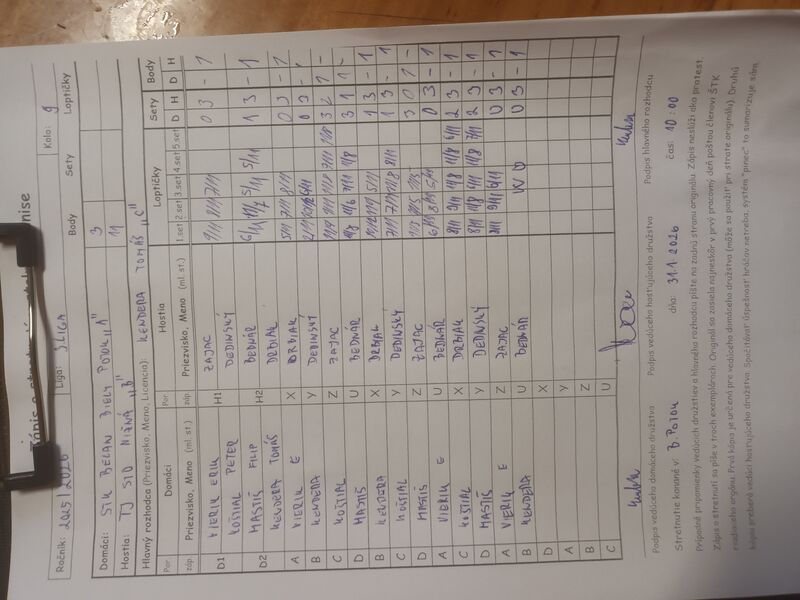 Zápis o stretnutí
Ročník: 2025/2026 Liga: 5.LIGA Kolo: 9
Body Sety Loptičky
Domáci: STK BELAN BIELY POTOK "A" 3
Hostia: TJ STO NIŽNÁ "B" 11
Hlavný rozhodca (Priezvisko, Meno, Licencia): KENDERA TOMÁŠ "C"
Por. Domáci Por. Hostia Loptičky Sety Body
záp. Priezvisko, Meno (ml. st.) záp. Priezvisko, Meno (ml. st.) 1.set 2.set 3.set 4.set 5.set D H D H
D1 VIERIK ERIK H1 ZAJAC 9/11 8/11 7/11 0 3 - 1
KOŠTIAL PETER DEDINSKÝ
D2 MASTIŠ FILIP H2 BEDNÁR 5/11 1 3 - 1
KENDERA TOMÁŠ DRBIAK
A VIERIK E X DRBIAK 5/11 7/11 8/11 0 3 - 1
B KENDERA Y DEDINSKÝ 0 3 -
C KOŠTIAL Z ZAJAC 3 2 1 -
D MASTIŠ U BEDNÁR 7/11 11/8 3 1 1 -
B KENDERA X DRBIAK 5/11 1 3 - 1
C KOŠTIAL Y DEDINSKÝ 7/11 8/11 1 3 - 1
D MASTIŠ Z ZAJAC 3 0 1 -
A VIERIK E U BEDNÁR 0 3 - 1
C KOŠTIAL X DRBIAK 8/11 11/8 11/8 6/11 2 3 - 1
D MASTIŠ Y DEDINSKÝ 8/11 11/8 11/8 7/11 2 3 - 1
A VIERIK E Z ZAJAC 8/11 9/11 6/11 0 3 - 1
B KENDERA U BEDNÁR WO 0 3 - 1
D X
A Y
B Z
C U
Podpis vedúceho domáceho družstva Podpis vedúceho hosťujúceho družstva Podpis hlavného rozhodcu
Stretnutie konané v: B. POTOK dňa: 31.1.2026 čas: 10:00
Prípadné pripomienky vedúcich družstiev a hlavného rozhodcu píšte na zadnú stranu originálu. Zápis neslúži ako protest.
Zápis o stretnutí sa píše v troch exemplároch. Originál sa zasiela najneskôr v prvý pracovný deň poštou členovi ŠTK
riadiaceho orgánu. Prvá kópia je určená pre vedúceho domáceho družstva (môže sa použiť pri strate originálu). Druhú
kópiu preberá vedúci hosťujúceho družstva. Spočítávať úspešnosť hráčov netreba, systém "pinec" to sumarizuje sám.